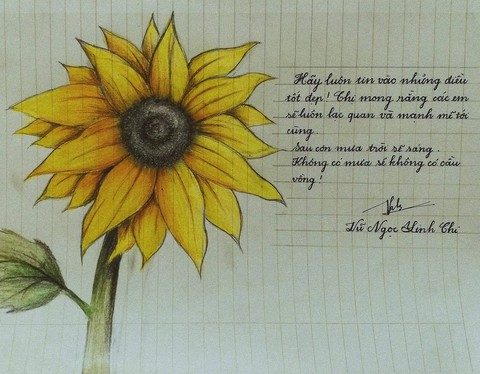 Hãy luôn tin vào những điều
tốt đẹp! Thị mong rằng các em
sẽ luôn lạc quan và mạnh mẽ tới
cùng.
Sau cơn mưa trời sẽ sáng.
Không có mưa sẽ không có cầu
vồng!
Vũ Ngọc Linh Chi